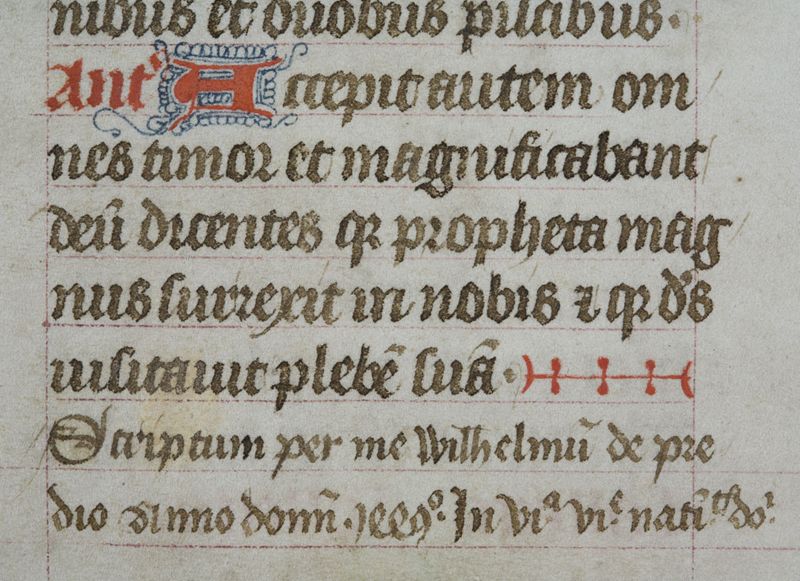 nibus et duobus piscibus.
Antᵃ Accepit autem om
nes timor et magnificabant
deū dicentes qꝛ propheta mag
nus surrexit in nobis ⁊ qꝛ d̄s
uisitauit plebē suā.
Scriptum per me Wilhelmū de pre
dio Anno domī .1449°. In viᵃ viᵉ nati.